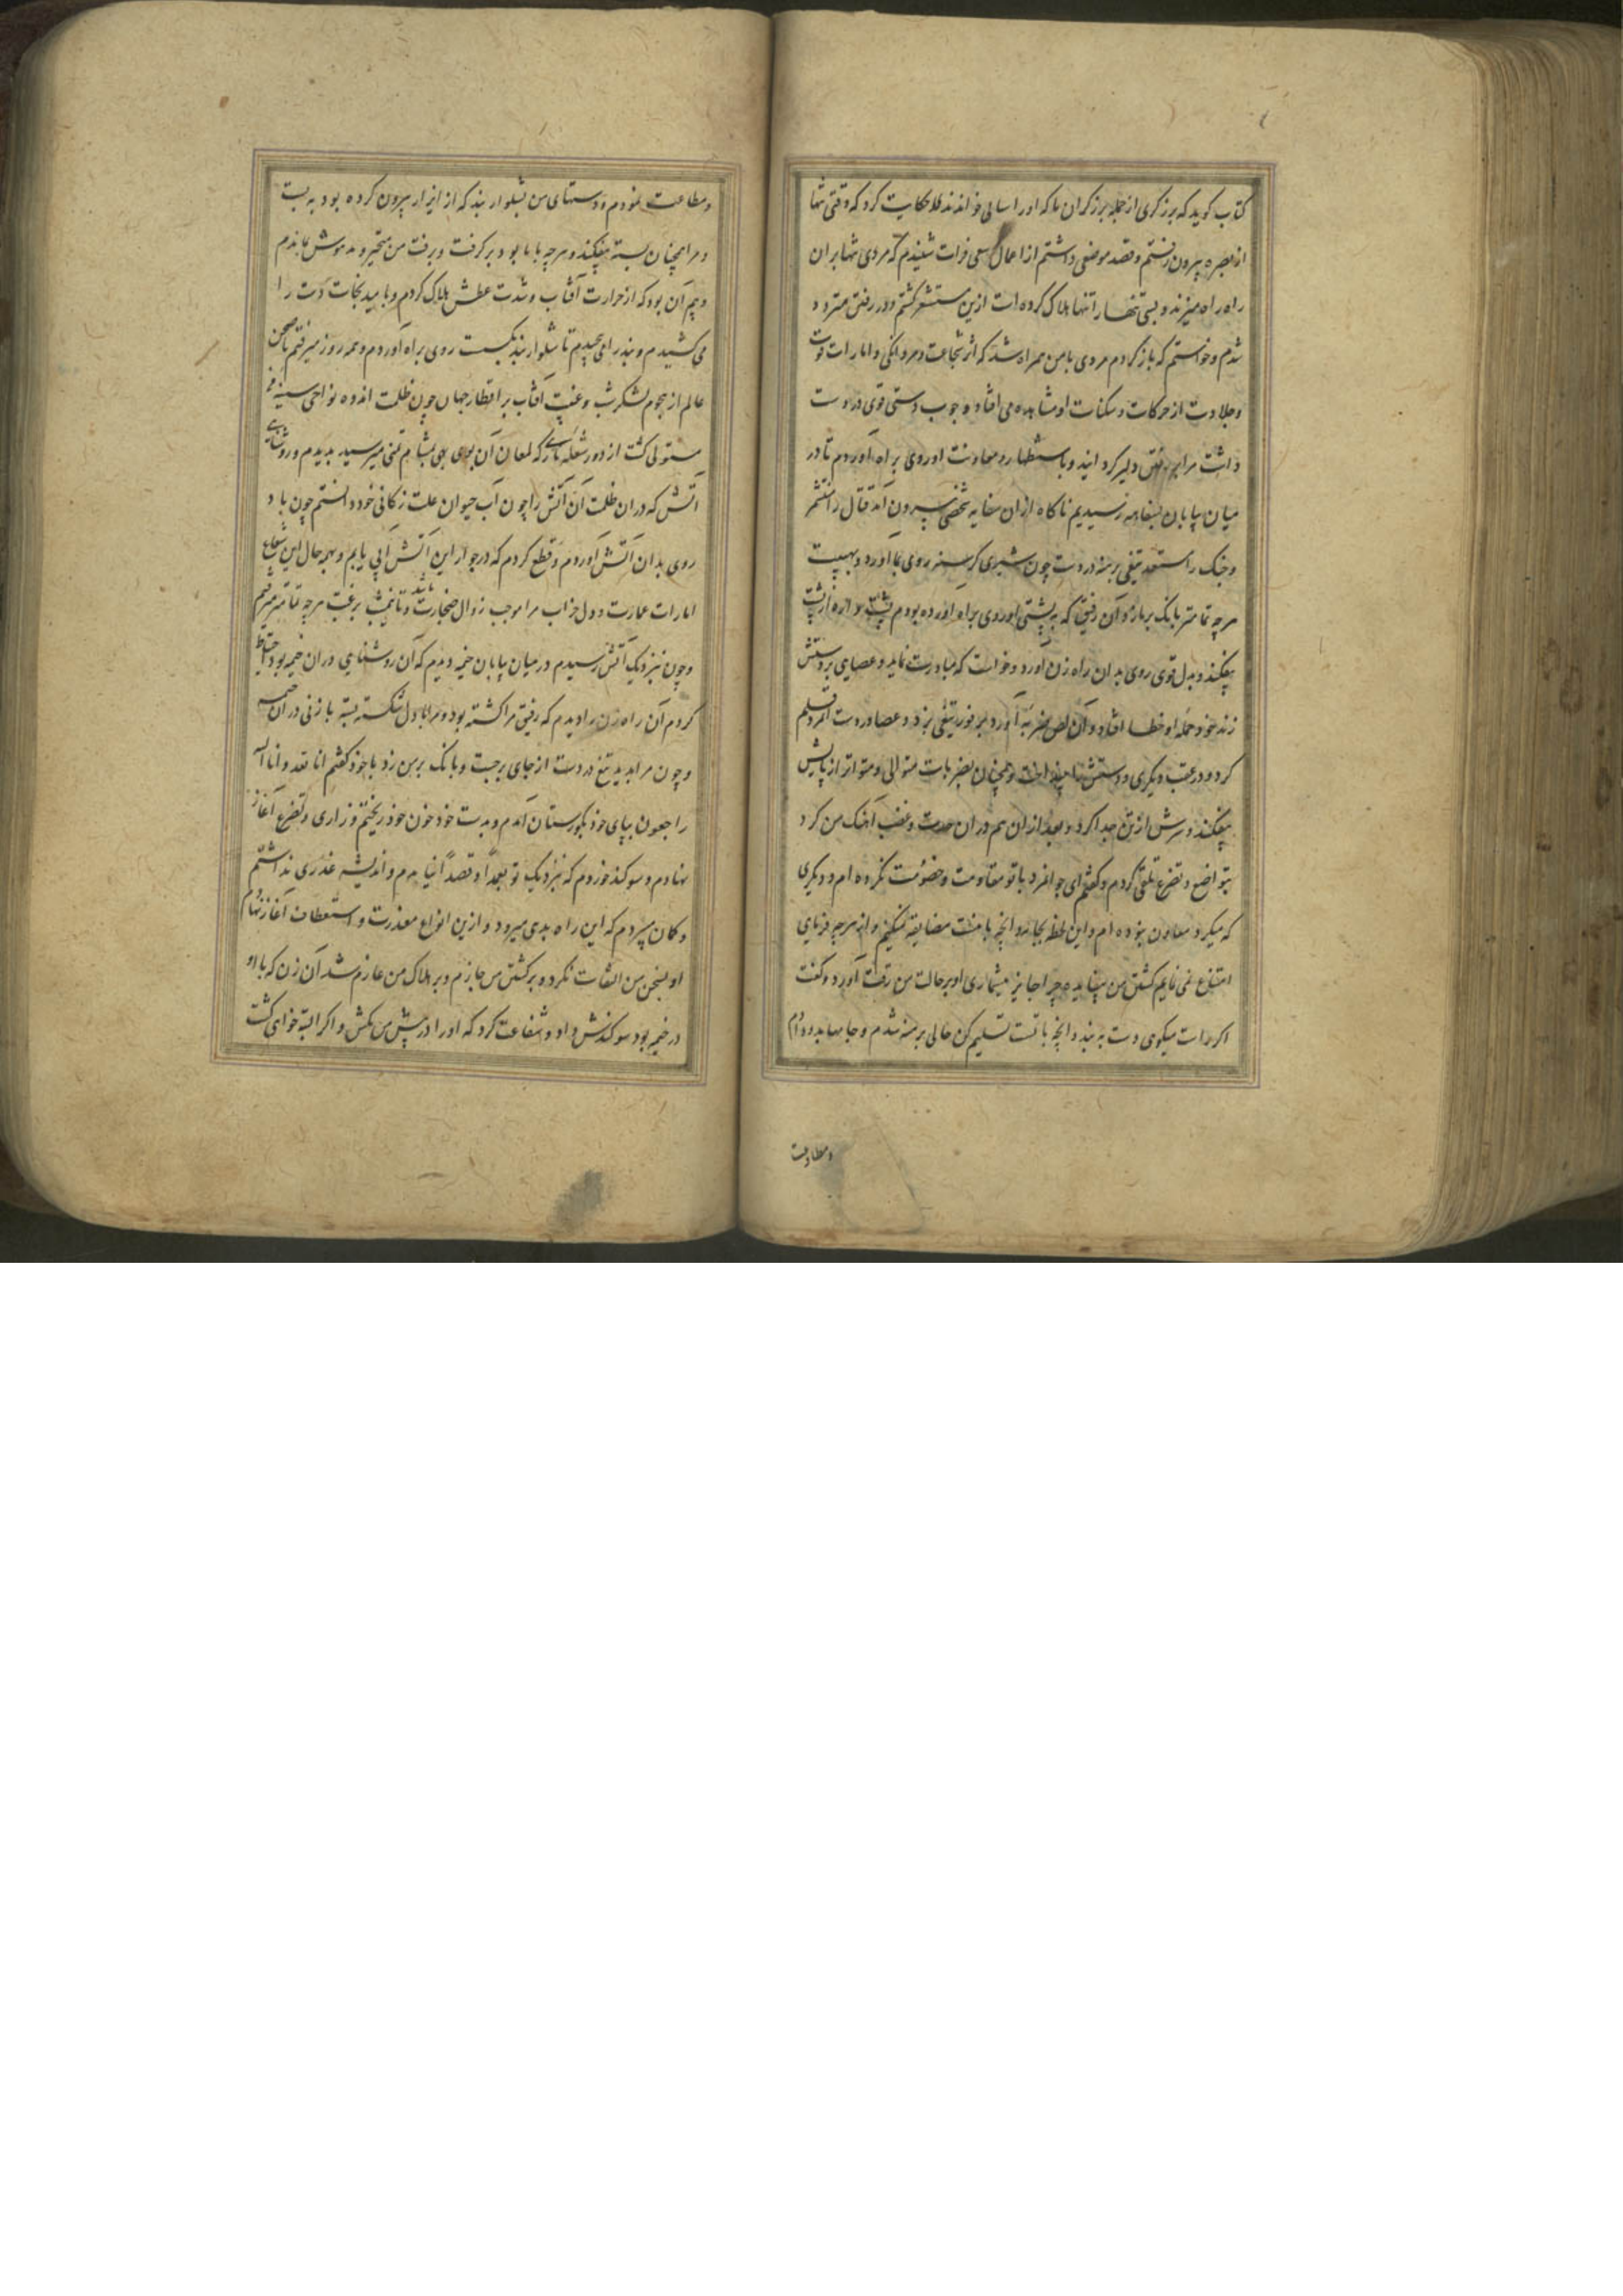 کتاب کوید که برزکری از جمله برزکران ما که او را سالی خواندند حکایت کرد که وقتی تنها
از بصره بیرون رفتم و قصد موضعی داشتم از اعمال سقی فرات شنیدم که مردی تنها بران
راه راه میزند و بسی تنها را تنها هلاک کرده است ازین مستشعر کشتم و در رفتن متردد
شدم و خواستم که باز کردم مردی با من همراه شد که اثر شجاعت و مردانکی و امارات قوت
و جلادت از حرکات و سکنات او مشاهده می افتاد و چوب دستی قوی در دست
داشت مرا بر رفتن دلیر کردانید و باستظهار و معاونت او روی براه آوردم تا در
میان بیابان بسقایه رسیدیم ناکاه از ان سقایه شخصی بیرون آمد قتال را متشمر
و جنک را مستعد تیغی برهنه در دست چون شیری کرسنه روی بما آورد و بهیبت
هرچه تمامتر بانک بر ما زد و آن رفیق که به پشتی او روی براه آورده بودم پشتواره از پشت
بیفکند و بدل قوی روی بدان راه زن آورد و خواست که مبادرت نماید و عصایی بر دستش
زند خود حمله او خطا افتاد و آن لص بضربه آورد بر فور تیغی بزد و عصا در دست آنمرد قلم
کرد و در عقب دیکری و دستش را بینداخت و همچنان بضربات متوالی و متواتر از پایش
بیفکند و سرش از تن جدا کرد و بعد از ان هم در ان حدت و غضب آهنک من کرد
بتواضع و تضرع تلقی کردم و کفتم ای جوانمرد با تو مقاومت و خصومت نکرده ام و دیکری
که میکرد معاون نبوده ام و این لحظه بجان و آنچه با منست مضایقه نمیکنم و از هرچه فرمایی
امتناع نمی نمایم کشتن من بیفایده چرا جایز میشماری او بر حالت من رقت آورد و کفت
اکر راست میکوی دست به بند و آنچه با تست تسلیم کن حالی برهنه شدم و جامها بدو دادم
و مطاوعت
و مطاوعت نمودم و دستهای من بشلوار بند که از ایزار بیرون کرده بود به بست
و مرا همچنان بسته بیفکند و هرچه با ما بود بر کرفت و برفت من متحیر و مدهوش بماندم
و بیم آن بود که از حرارت آفتاب و شدت عطش هلاک کردم و بامید نجات دست را
می کشیدم و بند را می جنبیدم تا شلوار بند بکسست روی براه آوردم و همه روز میرفتم تا صحن
عالم از هجوم لشکر شب و غیبت آفتاب بر اقطار جهان چون ظلمت اندوه نواحی سینه من
مستولی کشت از دور شعله ناری که لمعان آن بوی بهی بمشام تمنی میرسید بدیدم و روشنایی
آتش که در ان ظلمت آن آتش را چون آب حیوان علت زندکانی خود دانستم چون باد
روی بدان آتش آوردم و قطع کردم که در جوار این آتش آبی یابم و بهمه حال این شعاع
امارات عمارت و دل خراب مرا موجب زوال ضجارت باشد و تا نیمشب برغبت هرچه تمامتر میرفتم
و چون نزدیک آتش رسیدم در میان بیابان خیمه دیدم که آن روشنایی در ان خیمه بود احتیاط
کردم آن راه زن را دیدم که رفیق مرا کشته بود و مرا با دل شکسته بسته با زنی در ان خیمه
و چون مرا بدید تیغ در دست از جای برجست و بانک بر من زد با خود کفتم انا لله و انا الیه
راجعون بپای خود بکورستان آمدم و بدست خود خون خود ریختم و زاری و تضرع آغاز
نهادم و سوکند خوردم که بنزدیک تو تعمدا و قصدا نیامدم و اندیشه غدری نداشتم
و کمان نبردم که این راه بدی میرود و ازین انواع معذرت و استعطاف آغاز نهادم
او بسخن من التفات نکرد و بر کشتن من جازم و بر هلاک من عازم شد آن زن که با او
در خیمه بود سوکندش داد و شفاعت کرد که او را در پیش من مکش و اکر البته خواهی کشت